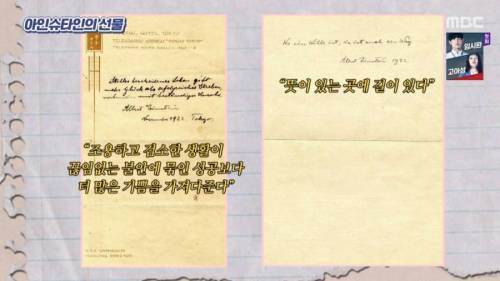 아인슈타인의 선물
MBC
임시완
고아성
Stilles bescheidenes Leben gibt
mehr Glück als erfolgreiches Streben,
verbunden mit beständiger Unruhe.
Albert Einstein
November 1922. Tokyo.
Wo ein Wille ist, da ist auch ein Weg
Albert Einstein 1922.
“뜻이 있는 곳에 길이 있다”
“조용하고 검소한 생활이
끊임없는 불안에 묶인 성공보다
더 많은 기쁨을 가져다준다”